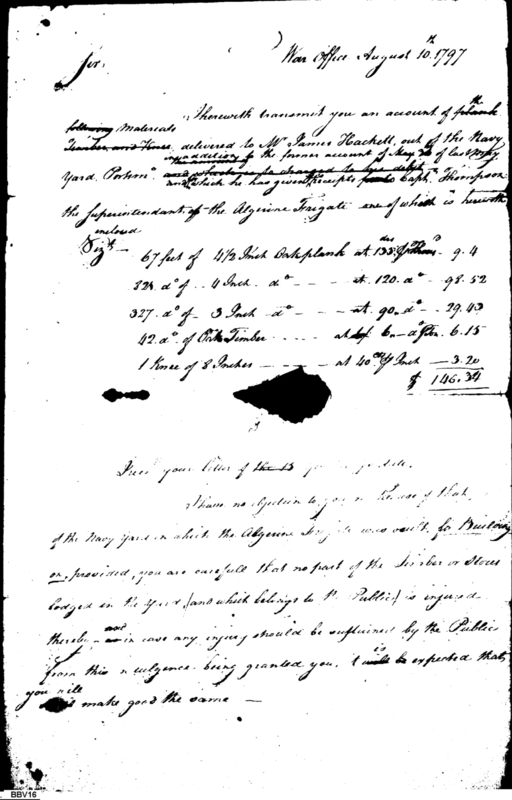 War Office August 10th 1797
Sir,
I herewith transmit you an account of the plank
following Materials
Timber and Knees delivered to Mr James Hackett, out of the Navy
in addition to the former account of May of last
Yard Portsmo and which he has given Receipts Capt Thompson
the Superintendant of the Algerine Frigate one of which is herewith
enclosed
Vizt
67 feet of 4 1/2 Inch Oak plank at 135 9.4
do of 4 Inch do at 120 do 98.52
327 do of 3 Inch do at 90 do 29.43
42 do of Oak Timber at 6.15
1 Knee of 8 Inches at 40 Cts Inch 3.20
$ 146.34
I recd your letter of the 15
I have no objection to you use of that
of the Navy Yard in which the Algerine Frigate was built, for Building
on, provided, you are carefull that no part of the Timber or Stores
lodged in the Yard (and which belongs to the Public) is injured
thereby and in case any injury should be sustained by the Public
from this indulgence being granted you, it is will be expected that
you will
make good the same
BBV16